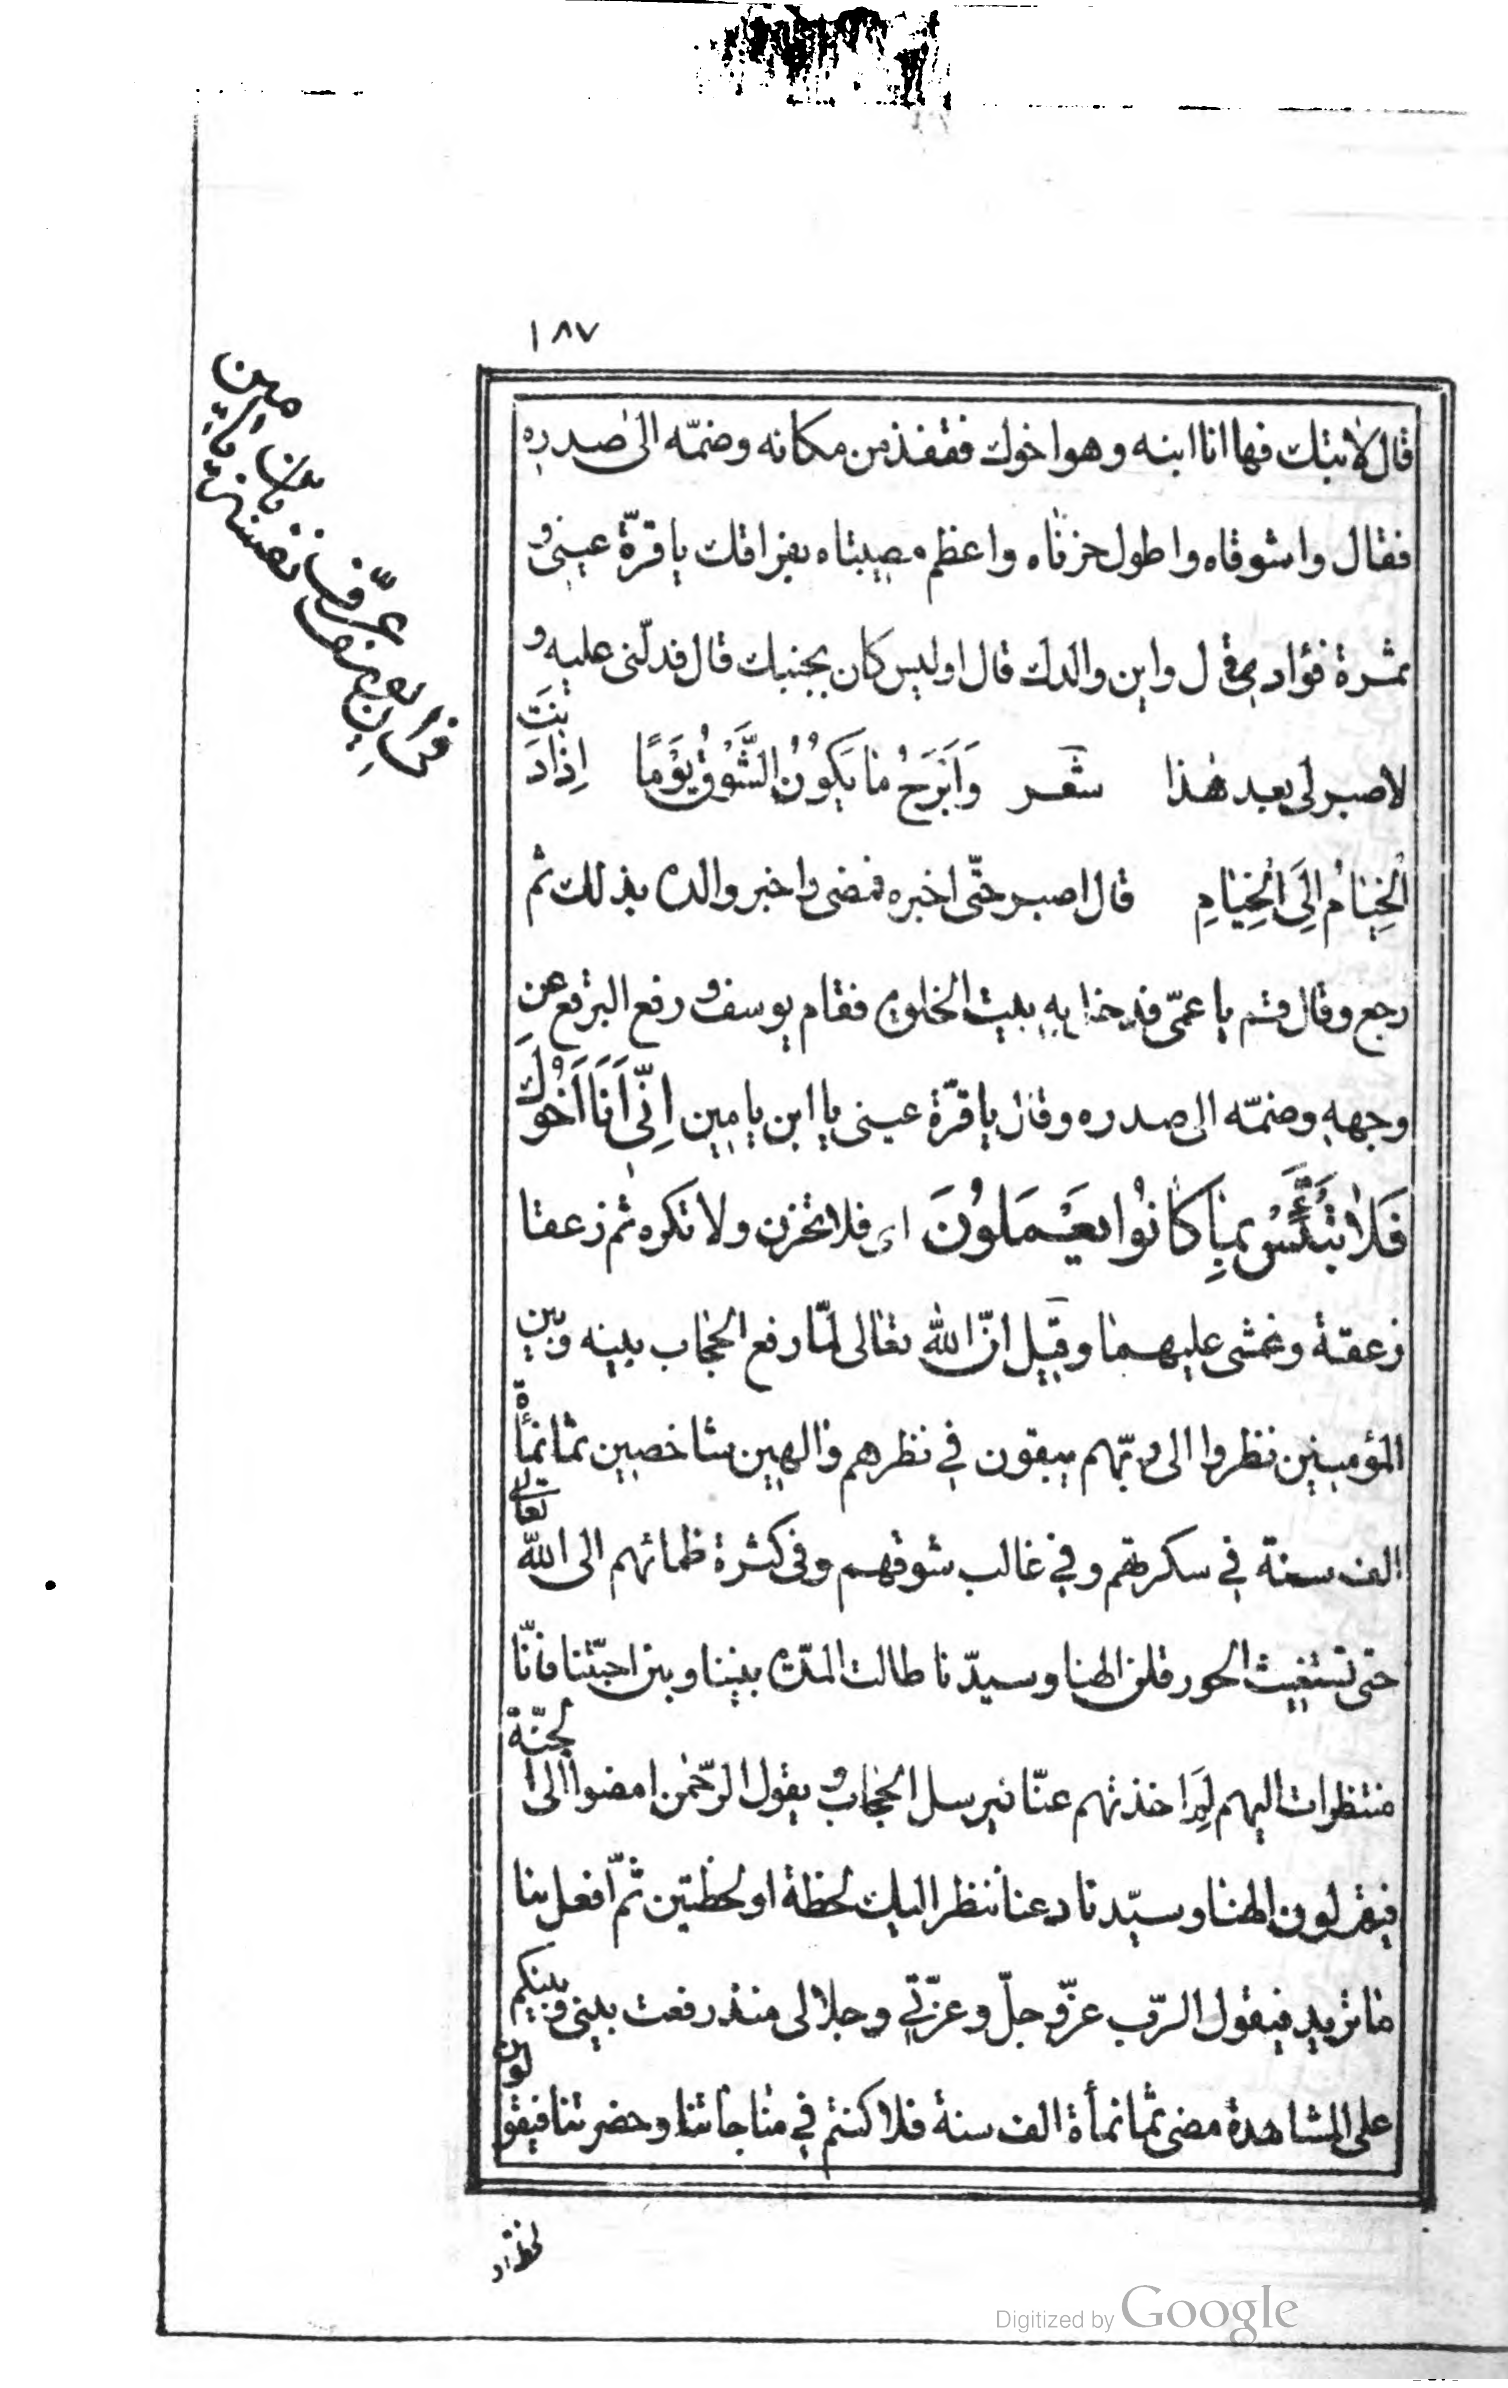 ١٨٧
قال لابتك فها انا ابنه وهو اخوك فقفذ من مكانه وضمّه الى صدره
فقال واشوقاه واطول حزناه واعظم مصيبتاه بفراقك يا قرّة عينى و
ثمرة فؤادى قال واين والدك قال اوليس كان بجنبك قال فدلّنى عليه و
لا صبر لى بعد هذا شعر وَاَبْرَحُ مَا يَكُوْنُ الشَّوْقُ يَوْمًا اِذَا دَنَتِ
الْخِيَامُ اِلَى الْخِيَامِ قال اصبر حتّى اخبره فمضى واخبر والده بذلك ثم
رجع وقال قم يا عمّى فدخلا به بيت الخلوى فقام يوسف و رفع البرقع عن
وجهه وضمّه الى صدره وقال يا قرّة عينى يا ابن يامين اِنِّى اَنَا اَخُوْكَ
فَلَا تَبْتَئِسْ بِمَا كَانُوْا يَعْمَلُوْنَ اى فلا تحزن ولا تكره ثم زعقا
زعقة وغمشى عليهما وقيل انّ الله تعالى لمّا رفع الحجاب بينه وبين
المؤمنين نظروا الى ربّهم يبقون في نظرهم والهين شاخصين ثمانمأة
الف سنة في سكرتهم وفي غالب شوقهم وفى كثرة ظمائهم الى الله تعالى
حتى تستغيث الحور قلن الهنا وسيّدنا طالت المدّة بيننا وبين احبّتنا فانّا
منتظرات اليهم لِمَ اخذتهم عنّا فيرسل الحجاب و يقول الرّحمن امضوا الى الجنّة
فيقولون الهنا وسيّدنا دعنا ننظر اليك لحظة او لحظتين ثمّ افعل بنا
ما تريد فيقول الرّب عزّ وجلّ وعزّتي وجلالى منذ رفعت بينى وبينكم
على المشاهدة مضى ثمانمأة الف سنة فلا كنتم في مناجاتنا وحضرتنا فيقولون
Digitized by Google